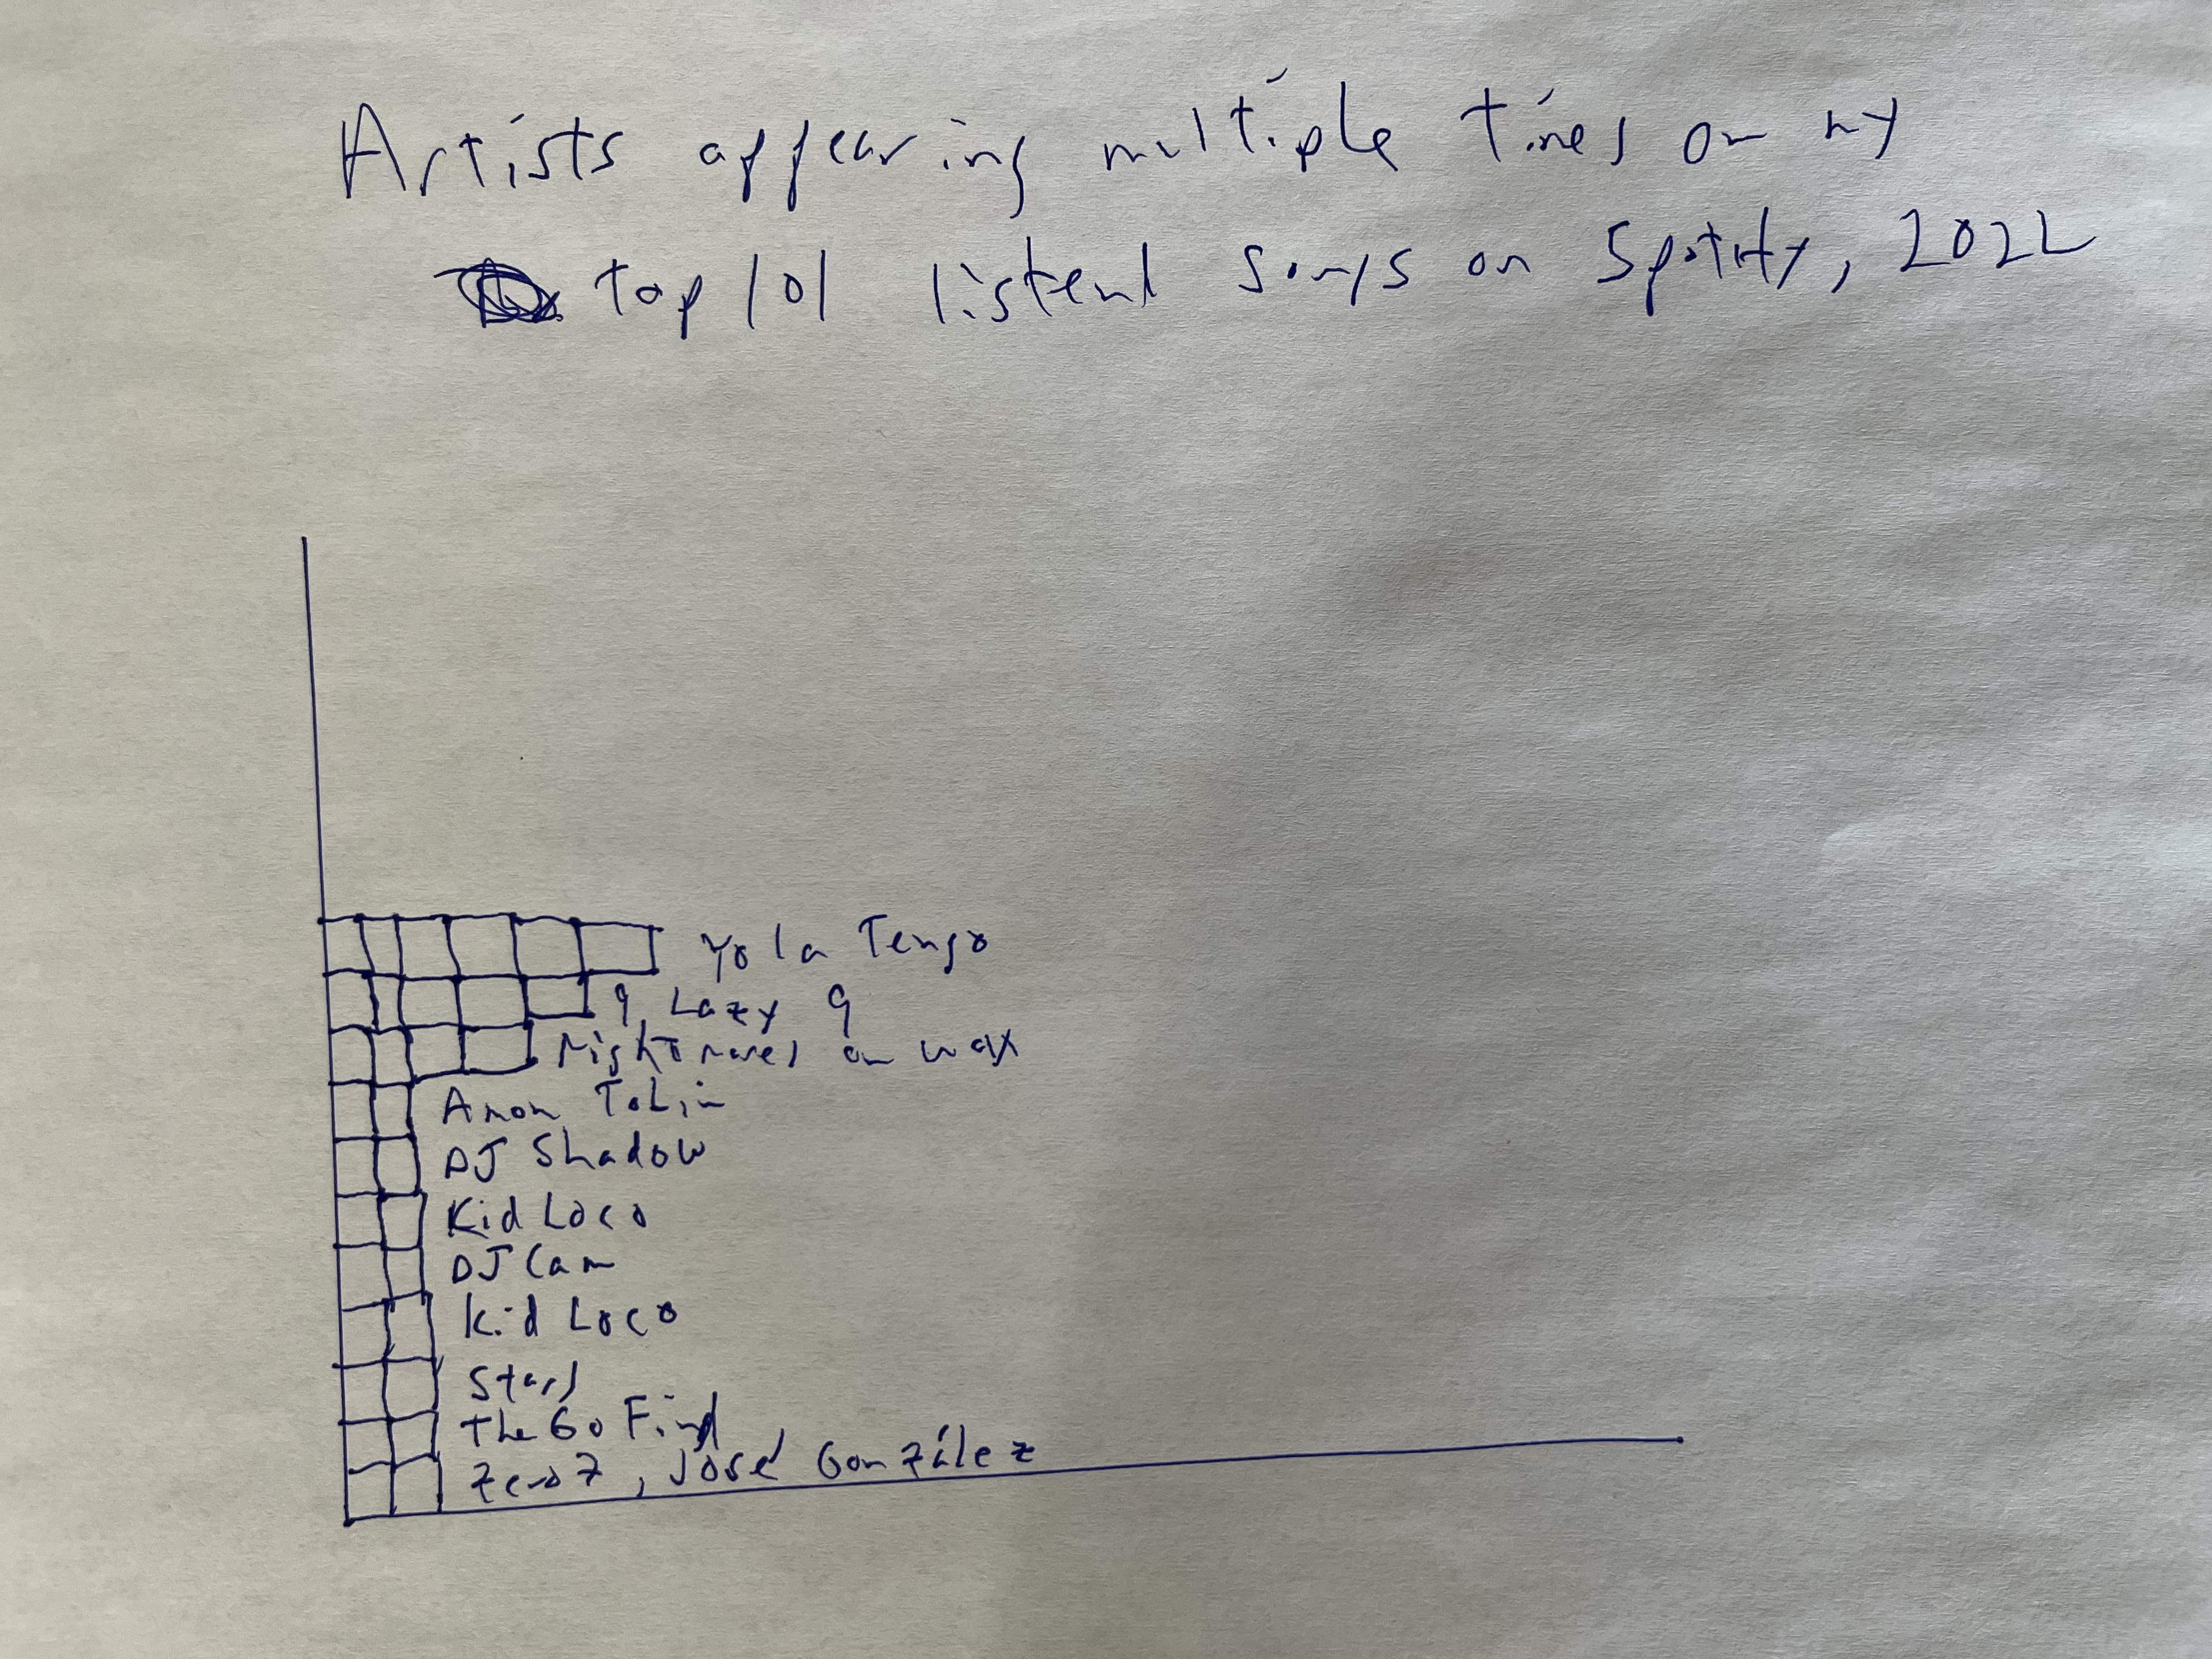 Artists appearing multiple times on my
top 101 listend songs on Spotify, 2022
Yo la Tengo
9 Lazy 9
Nightmares on wax
Amon Tobin
DJ Shadow
Kid Loco
DJ Cam
Kid Loco
Stars
The Go Find
Zero 7, José González